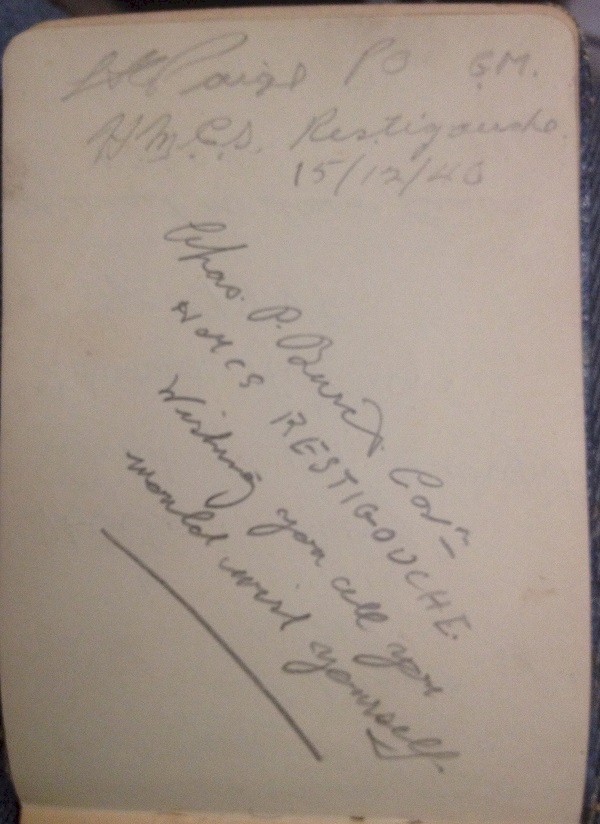 Paige PO GM.
H.M.C.S. Restigouche.
15/12/40
Chas. P. Burd. Coxn
HMCS RESTIGOUCHE.
Wishing you all you
would wish yourself.